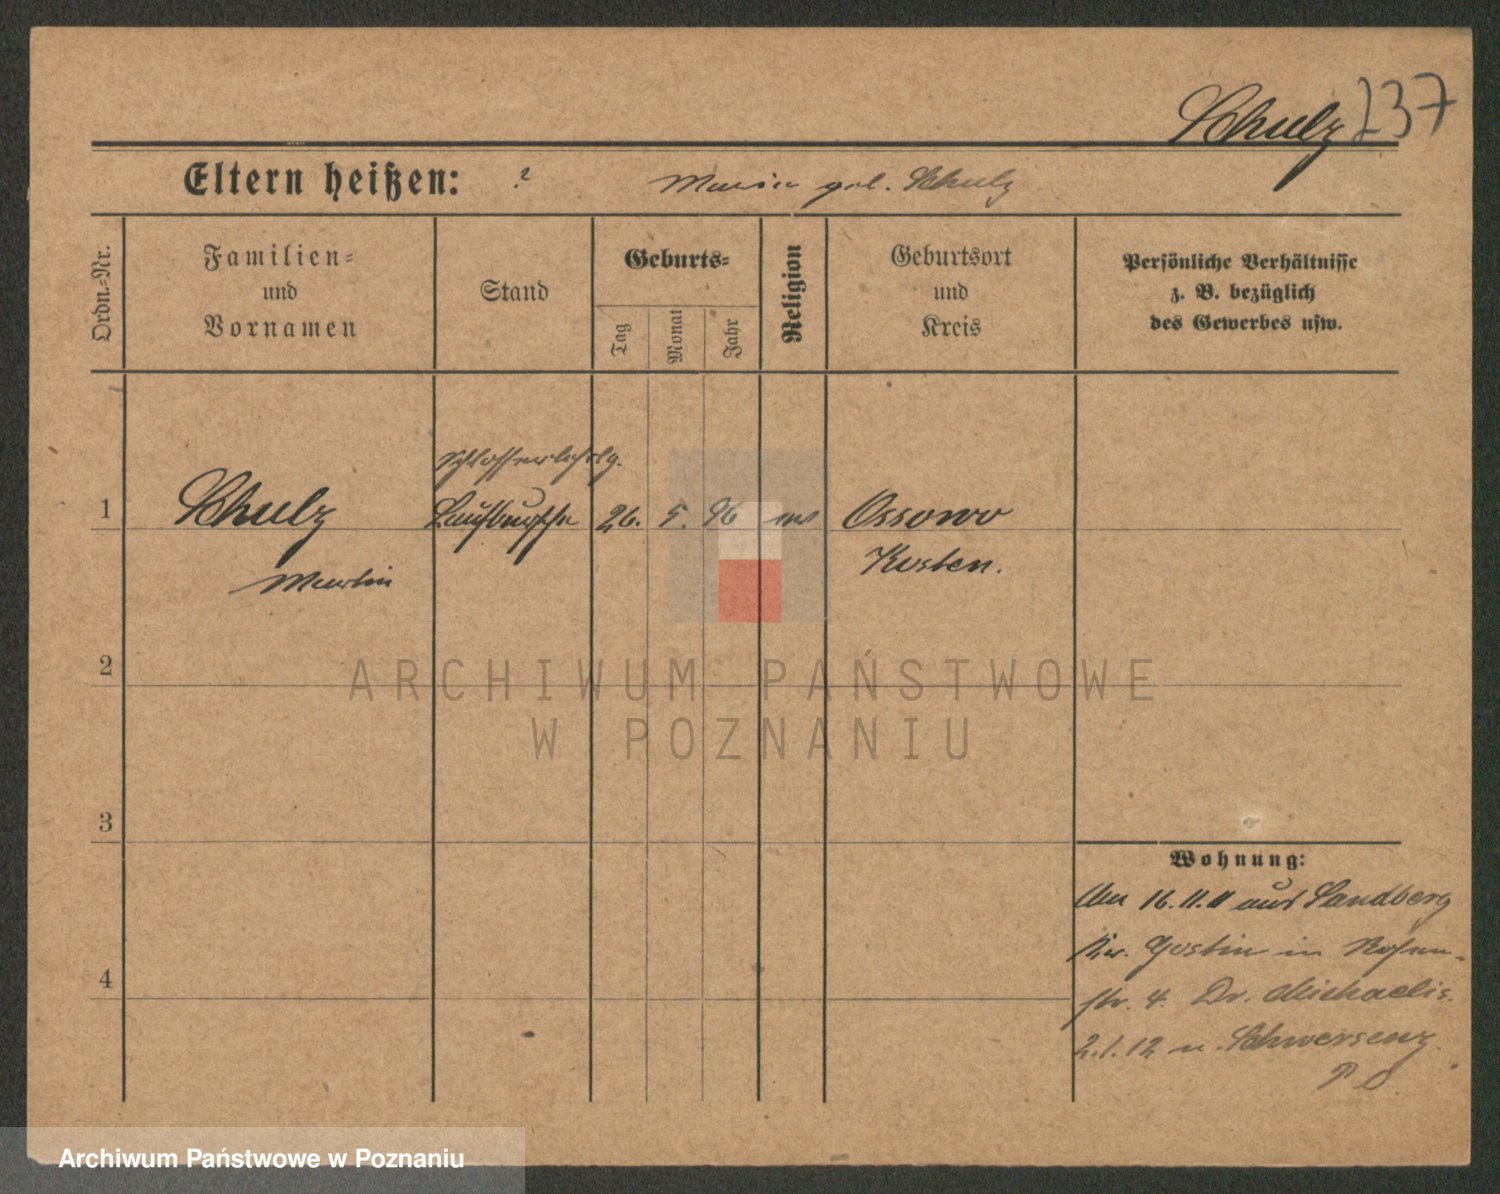 Schulz 237
Eltern heißen: ? Maria geb. Schulz
Ordn.-Nr.
Familien-
und
Vornamen
Stand
Geburts-
Tag
Monat
Jahr
Religion
Geburtsort
und
Kreis
Persönliche Verhältnisse
z. B. bezüglich
des Gewerbes usw.
Schlosserlehrlg.
1 Schulz Laufbursche 26. 5. 96 Ossowo
Martin Kosten.
2
ARCHIWUM PAŃSTWOWE
W POZNANIU
3
Wohnung:
Am 16.11.11 aus Sandberg
Kr. Gostin in Rosen-
str. 4. Dr. Michaelis.
2.1.12 n. Schwersenz.
4
Archiwum Państwowe w Poznaniu